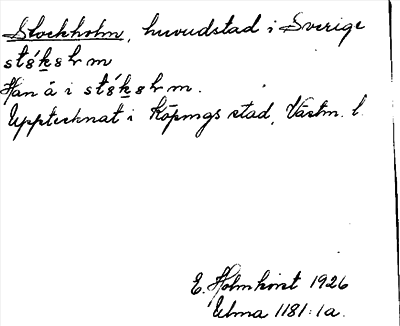 Stockholm, huvudstad i Sverige
Han ä i
Upptecknat i Köpings stad, Västm. l.
E. Holmkvist 1926
Ulma 1181:1a.